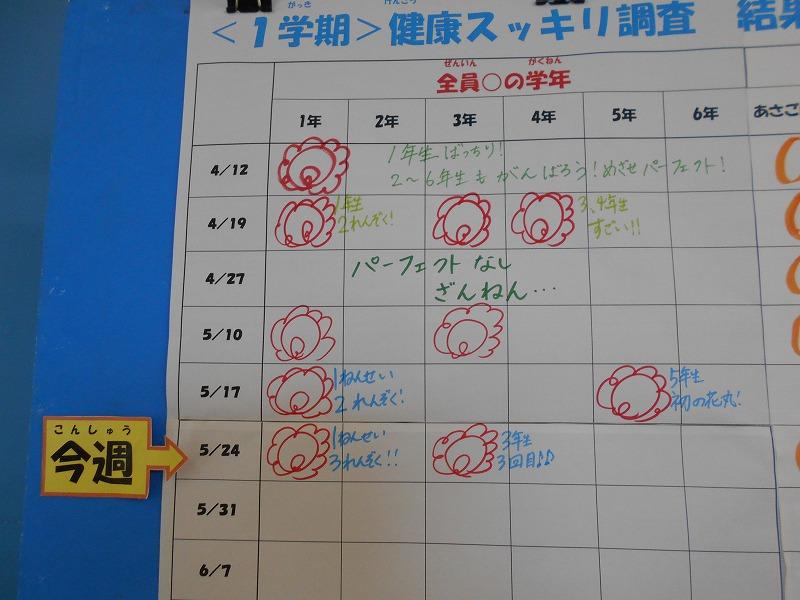 がっき けんこう
<1学期>健康スッキリ調査 結果
ぜんいん がくねん
全員○の学年
1年 2年 3年 4年 5年 6年 あさご
4/12 1年生 ばっちり!
2〜6年生も がんばろう!めざせパーフェクト!
4/19 1年生 3、4年生
2れんぞく! すごい!!
4/27 パーフェクト なし
ざんねん…
5/10
5/17 1ねんせい 5年生
2れんぞく! 初の花丸!
こんしゅう
今週
5/24 1ねんせい 3年生
3れんぞく!! 3回目♪♪
5/31
6/7